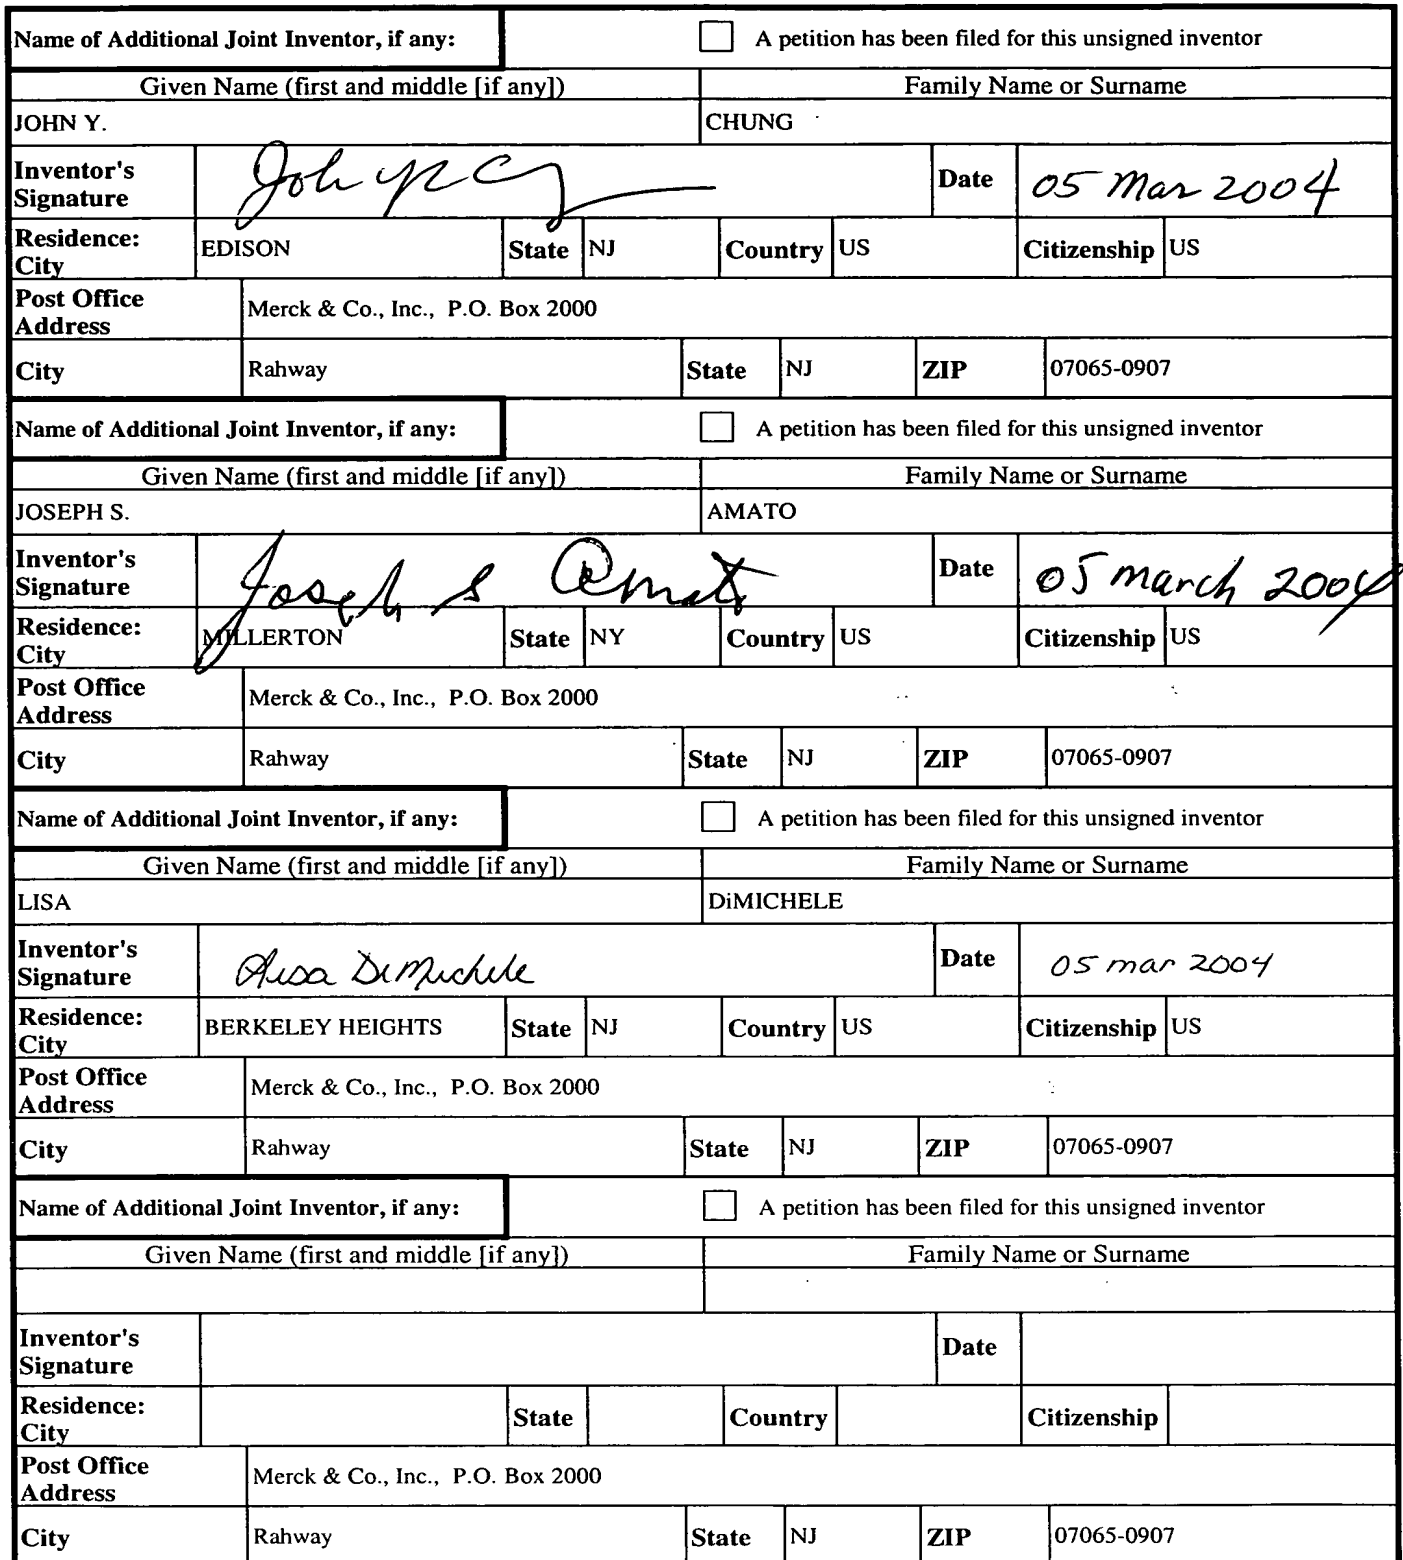 Name of Additional Joint Inventor, if any: A petition has been filed for this unsigned inventor
Given Name (first and middle [if any]) Family Name or Surname
JOHN Y. CHUNG
Inventor's Signature Date 05 Mar 2004
Residence: City EDISON State NJ Country US Citizenship US
Post Office Address Merck & Co., Inc., P.O. Box 2000
City Rahway State NJ ZIP 07065-0907
Name of Additional Joint Inventor, if any: A petition has been filed for this unsigned inventor
Given Name (first and middle [if any]) Family Name or Surname
JOSEPH S. AMATO
Inventor's Signature Joseph S Amato Date 05 March 2004
Residence: City MILLERTON State NY Country US Citizenship US
Post Office Address Merck & Co., Inc., P.O. Box 2000
City Rahway State NJ ZIP 07065-0907
Name of Additional Joint Inventor, if any: A petition has been filed for this unsigned inventor
Given Name (first and middle [if any]) Family Name or Surname
LISA DiMICHELE
Inventor's Signature Lisa DiMichele Date 05 mar 2004
Residence: City BERKELEY HEIGHTS State NJ Country US Citizenship US
Post Office Address Merck & Co., Inc., P.O. Box 2000
City Rahway State NJ ZIP 07065-0907
Name of Additional Joint Inventor, if any: A petition has been filed for this unsigned inventor
Given Name (first and middle [if any]) Family Name or Surname
Inventor's Signature Date
Residence: City State Country Citizenship
Post Office Address Merck & Co., Inc., P.O. Box 2000
City Rahway State NJ ZIP 07065-0907